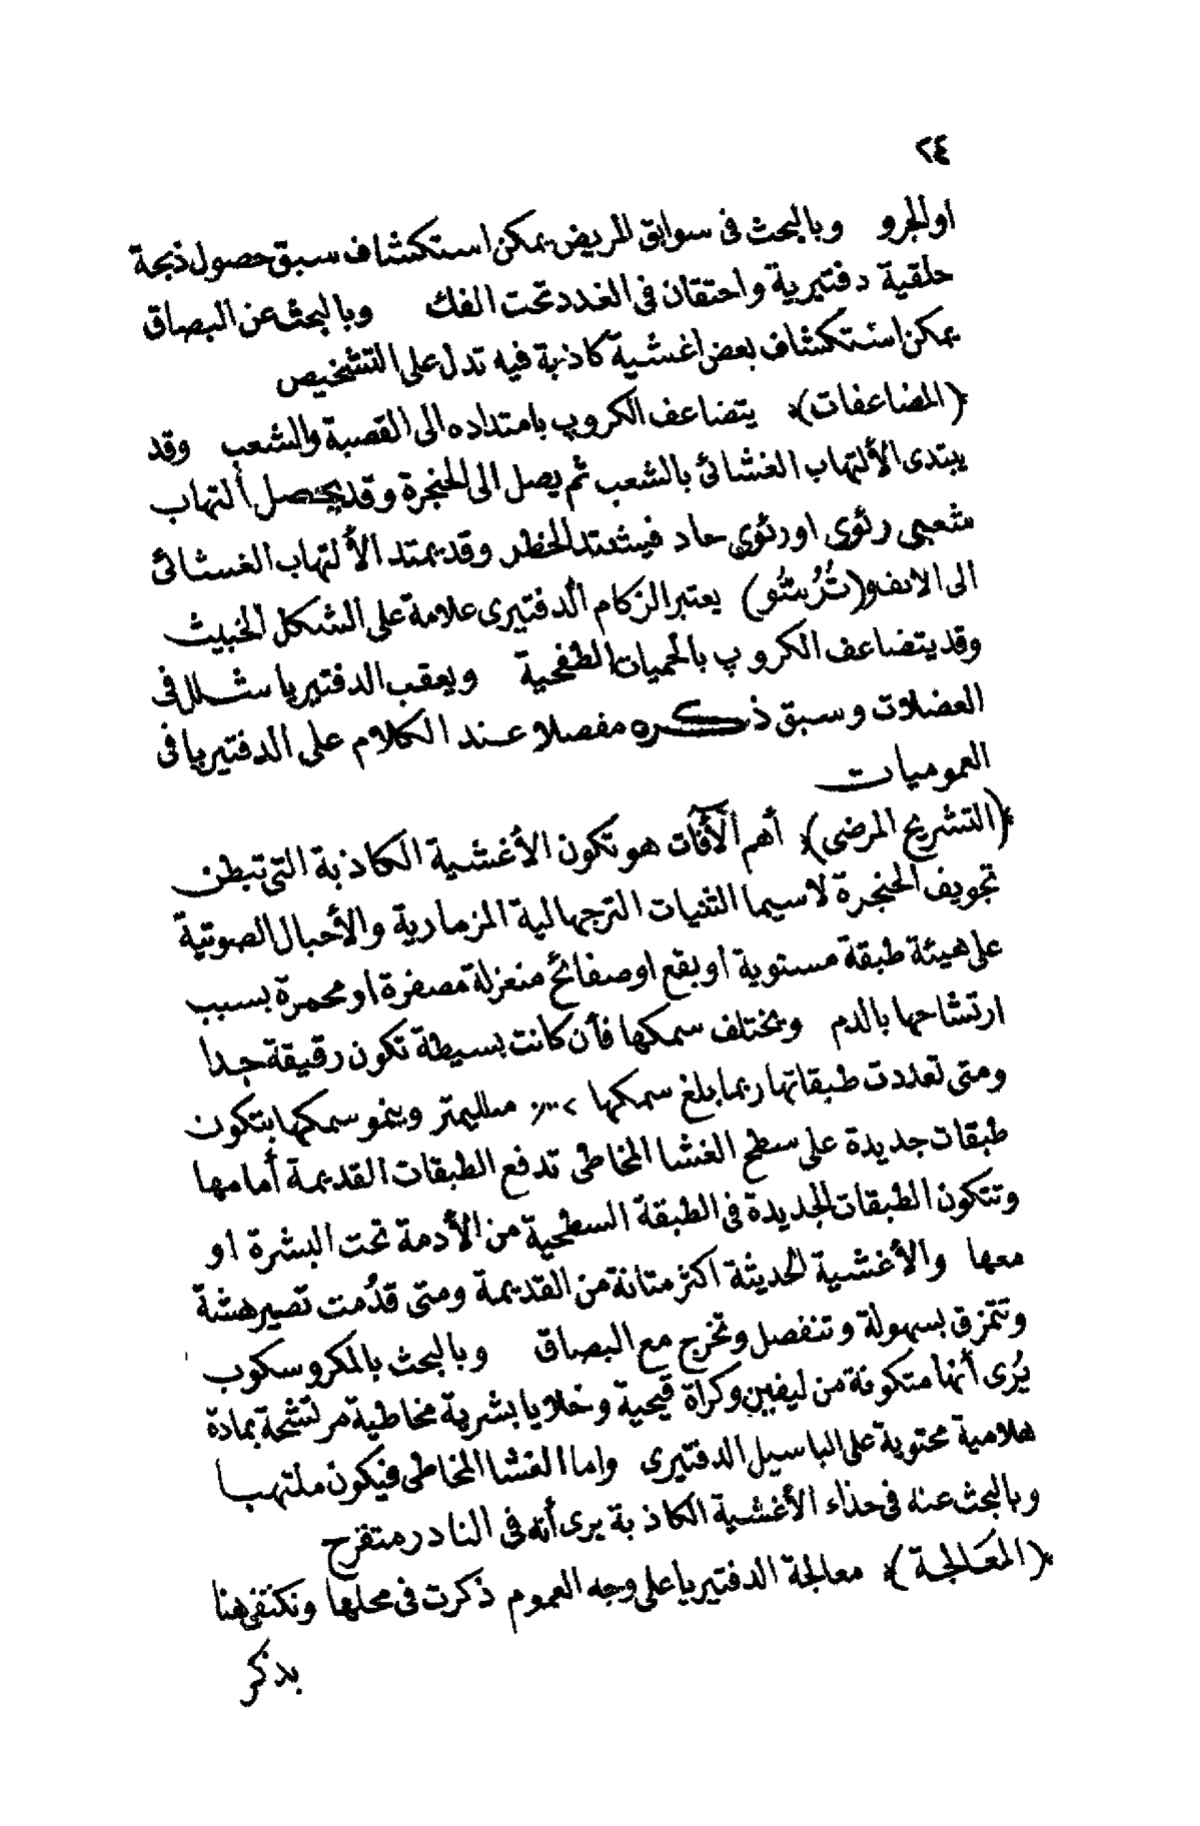 ٢٤
او الجرو وبالبحث فى سوابق المريض يمكن استكشاف سبق حصول ذبحة
حلقية دفتيرية واحتقان فى الغدد تحت الفك وبالبحث عن البصاق
يمكن استكشاف بعض اغشية كاذبة فيه تدل على التشخيص
﴿المضاعفات﴾ يتضاعف الكروپ بامتداده الى القصبة والشعب وقد
يبتدى الألتهاب الغشائى بالشعب ثم يصل الى الحنجرة وقد يحصل ألتهاب
شعبى رئوى او رئوى حاد فيشتد الخطر وقد يمتد الألتهاب الغشائى
الى الانف و(تُرُسّو) يعتبر الزكام الدفتيرى علامة على الشكل الخبيث
وقد يتضاعف الكروپ بالحميات الطفحية ويعقب الدفتيريا شلل فى
العضلات وسبق ذكره مفصلا عند الكلام على الدفتيريا فى
العموميات
﴿التشريح المرضى﴾ أهم الآفات هو تكون الأغشية الكاذبة التى تبطن
تجويف الحنجرة لاسيما الثنيات الترجهالية المزمارية والأحبال الصوتية
على هيئة طبقة مستوية او بقع او صفائح منعزلة مصفرة او محمرة بسبب
ارتشاحها بالدم ويختلف سمكها فأن كانت بسيطة تكون رقيقة جدا
ومتى تعددت طبقاتها ربما بلغ سمكها ملليمتر وينمو سمكها بتكون
طبقات جديدة على سطح الغشا المخاطى تدفع الطبقات القديمة أمامها
وتتكون الطبقات الجديدة فى الطبقة السطحية من الأدمة تحت البشرة او
معها والأغشية الحديثة اكثر متانة من القديمة ومتى قدُمت تصير هشة
وتتمزق بسهولة وتنفصل وتخرج مع البصاق وبالبحث بالمكروسكوب
يُرى أنها متكونة من ليفين وكراة قيحية وخلايا بشرية مخاطية مرتشحة بمادة
هلامية محتوية على الباسيل الدفتيرى واما الغشا المخاطى فيكون ملتهبا
وبالبحث عنه فى حذاء الأغشية الكاذبة يرى أنه فى النادر متقرح
﴿المعَالجة﴾ معالجة الدفتيريا على وجه العموم ذكرت فى محلها ونكتفى هنا
بذكر